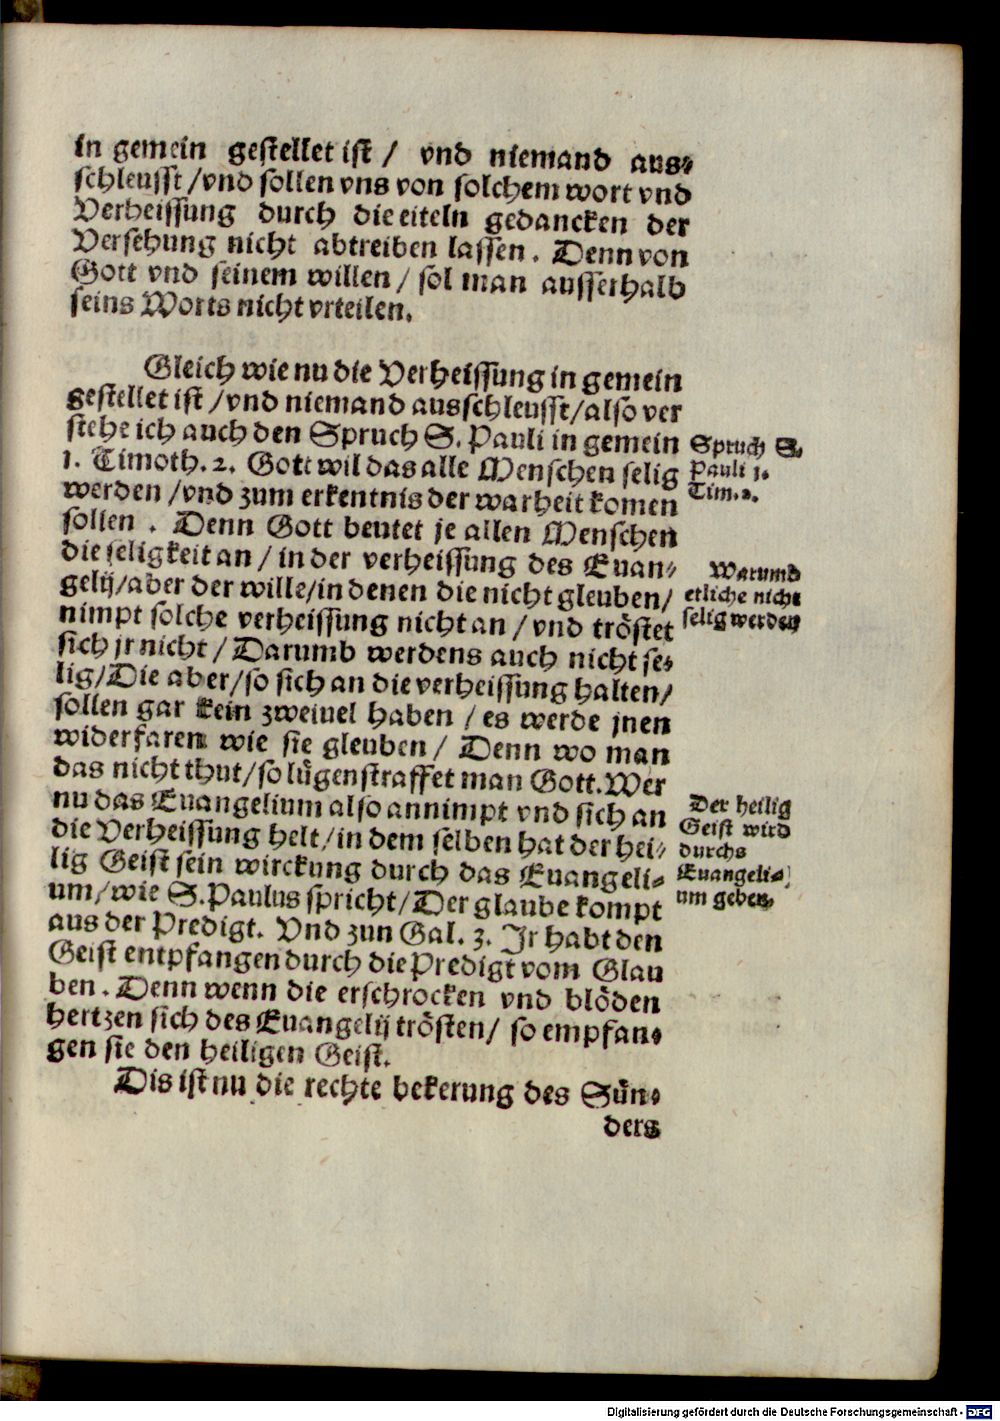 in gemein gestellet ist / vnd niemand aus-
schleusst / vnd sollen vns von solchem wort vnd
Verheissung durch die eiteln gedancken der
Versehung nicht abtreiben lassen. Denn von
Gott vnd seinem willen / sol man ausserhalb
seins Worts nicht vrteilen.
Gleich wie nu die Verheissung in gemein
gestellet ist / vnd niemand ausschleusst / also ver
stehe ich auch den Spruch S. Pauli in gemein
1. Timoth. 2. Gott wil das alle Menschen selig
werden / vnd zum erkentnis der warheit komen
sollen. Denn Gott beutet je allen Menschen
die seligkeit an / in der verheissung des Euan-
gelij / aber der wille / in denen die nicht gleuben /
nimpt solche verheissung nicht an / vnd tröstet
sich jr nicht / Darumb werdens auch nicht se-
lig / Die aber / so sich an die verheissung halten /
sollen gar kein zweiuel haben / es werde jnen
widerfaren wie sie gleuben / Denn wo man
das nicht thut / so lügenstraffet man Gott. Wer
nu das Euangelium also annimpt vnd sich an
die Verheissung helt / in dem selben hat der hei-
lig Geist sein wirckung durch das Euangeli-
um / wie S. Paulus spricht / Der glaube kompt
aus der Predigt. Vnd zun Gal. 3. Jr habt den
Geist entpfangen durch die Predigt vom Glau
ben. Denn wenn die erschrocken vnd blöden
hertzen sich des Euangelij trösten / so empfan-
gen sie den heiligen Geist.
Dis ist nu die rechte bekerung des Sün-
ders
Spruch S.
Pauli 1.
Tim. 2.
Warumb
etliche nicht
selig werden
Der heilig
Geist wird
durchs
Euangeli-
um geben.
Digitalisierung gefördert durch die Deutsche Forschungsgemeinschaft - DFG